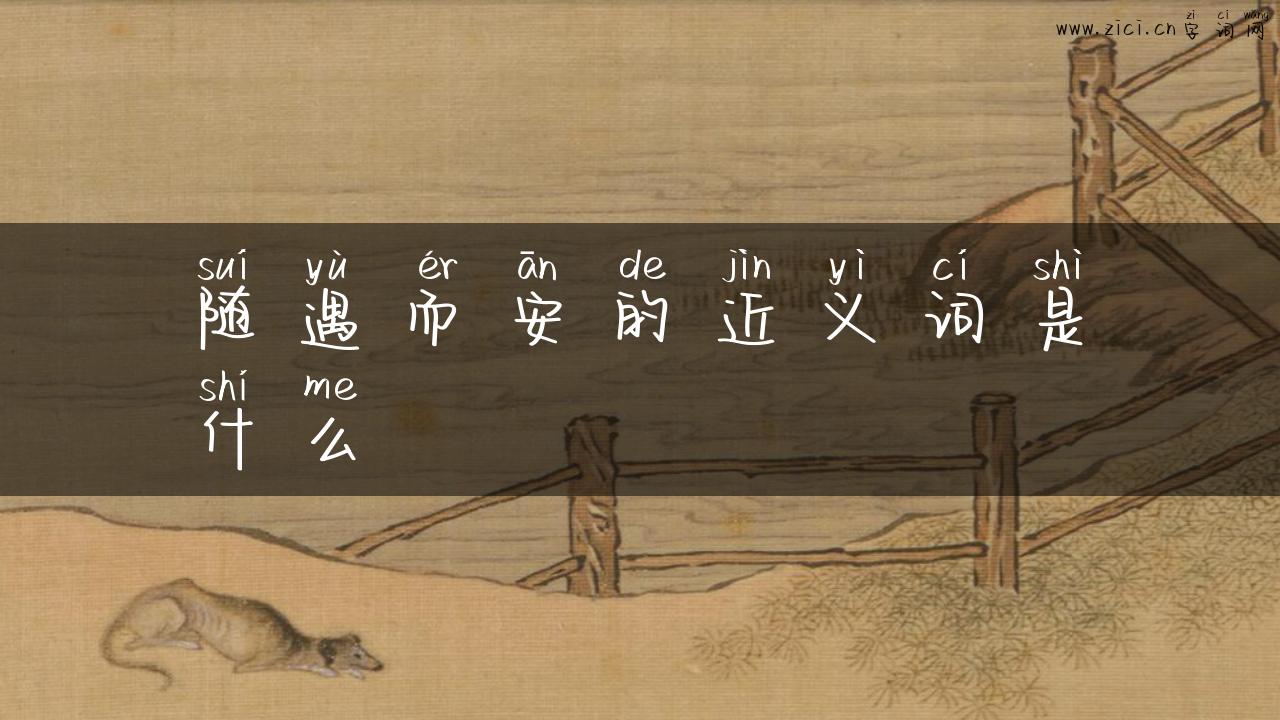 zì cí wǎng
www.zici.cn 字词网
suí yù ér ān de jìn yì cí shì
随遇而安的近义词是
shí me
什么